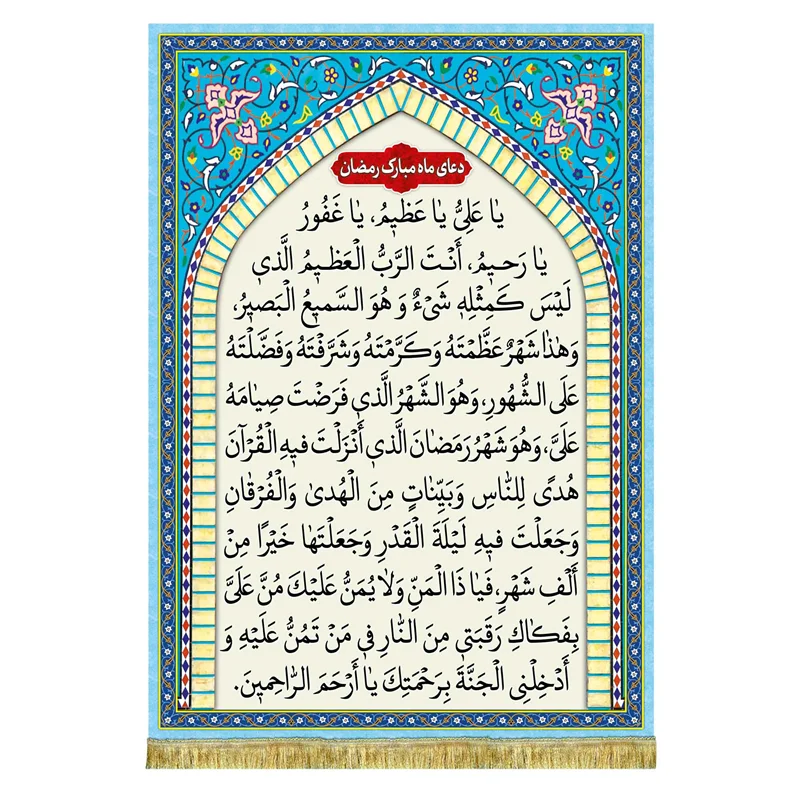 دعای ماه مبارک رمضان
یٰا عَلِیُّ یٰا عَظیٖمُ، یٰا غَفُورُ
یٰا رَحیٖمُ، أَنْتَ الرَّبُّ الْعَظیٖمُ الَّذیٖ
لَیْسَ کَمِثْلِهٖ شَیْءٌ وَ هُوَ السَّمیٖعُ الْبَصیٖرُ،
وَ هٰذٰا شَهْرٌ عَظَّمْتَهُ وَ کَرَّمْتَهُ وَ شَرَّفْتَهُ وَ فَضَّلْتَهُ
عَلَی الشُّهُورِ، وَ هُوَ الشَّهْرُ الَّذیٖ فَرَضْتَ صِیٰامَهُ
عَلَیَّ، وَ هُوَ شَهْرُ رَمَضٰانَ الَّذیٖ أَنْزَلْتَ فیٖهِ الْقُرْآنَ
هُدًی لِلنّٰاسِ وَ بَیِّنٰاتٍ مِنَ الْهُدیٰ وَ الْفُرْقٰانِ
وَ جَعَلْتَ فیٖهِ لَیْلَةَ الْقَدْرِ وَ جَعَلْتَهٰا خَیْرًا مِنْ
أَلْفِ شَهْرٍ، فَیٰا ذَا الْمَنِّ وَ لٰا یُمَنُّ عَلَیْكَ مُنَّ عَلَیَّ
بِفَکٰاكِ رَقَبَتیٖ مِنَ النّٰارِ فیٖ مَنْ تَمُنُّ عَلَیْهِ وَ
أَدْخِلْنِی الْجَنَّةَ بِرَحْمَتِكَ یٰا أَرْحَمَ الرّٰاحِمیٖنَ.